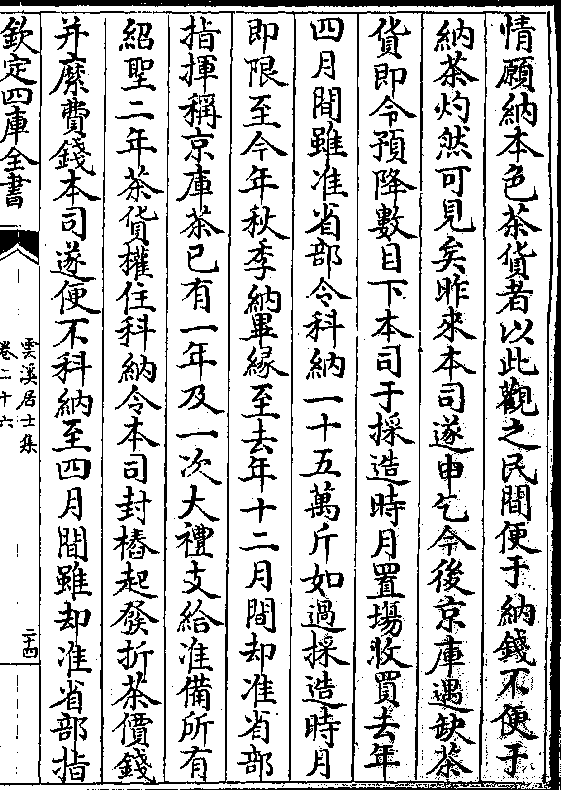 情願納本色茶貨者以此觀之民間便于納錢不便于
納茶灼然可見矣昨來本司遂申乞今後京庫遇缺茶
貨即令預降數目下本司于採造時月置場收買去年
四月間雖准省部令科納一十五萬斤如遇採造時月
即限至今年秋季納畢緣至去年十二月間却准省部
指揮稱京庫茶已有一年及一次大禮支給准備所有
紹聖二年茶貨權住科納令本司封樁起發折茶價錢
并縻費錢本司遂便不科納至四月間雖却准省部指
欽定四庫全書
雲溪居士集
卷二十六
二十四